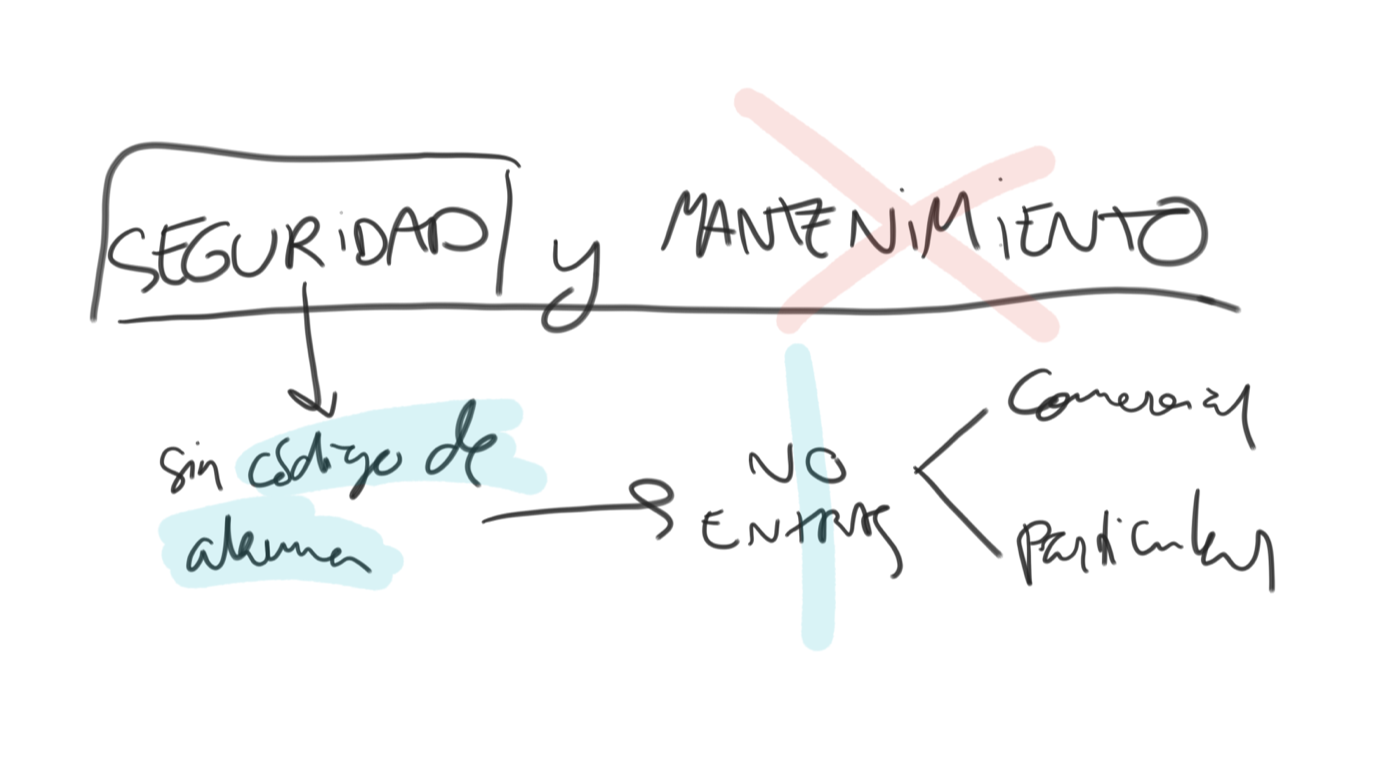 SEGURIDAD y MANTENIMIENTO
sin código de
alarma
NO
ENTRAS
Comercial
Particular